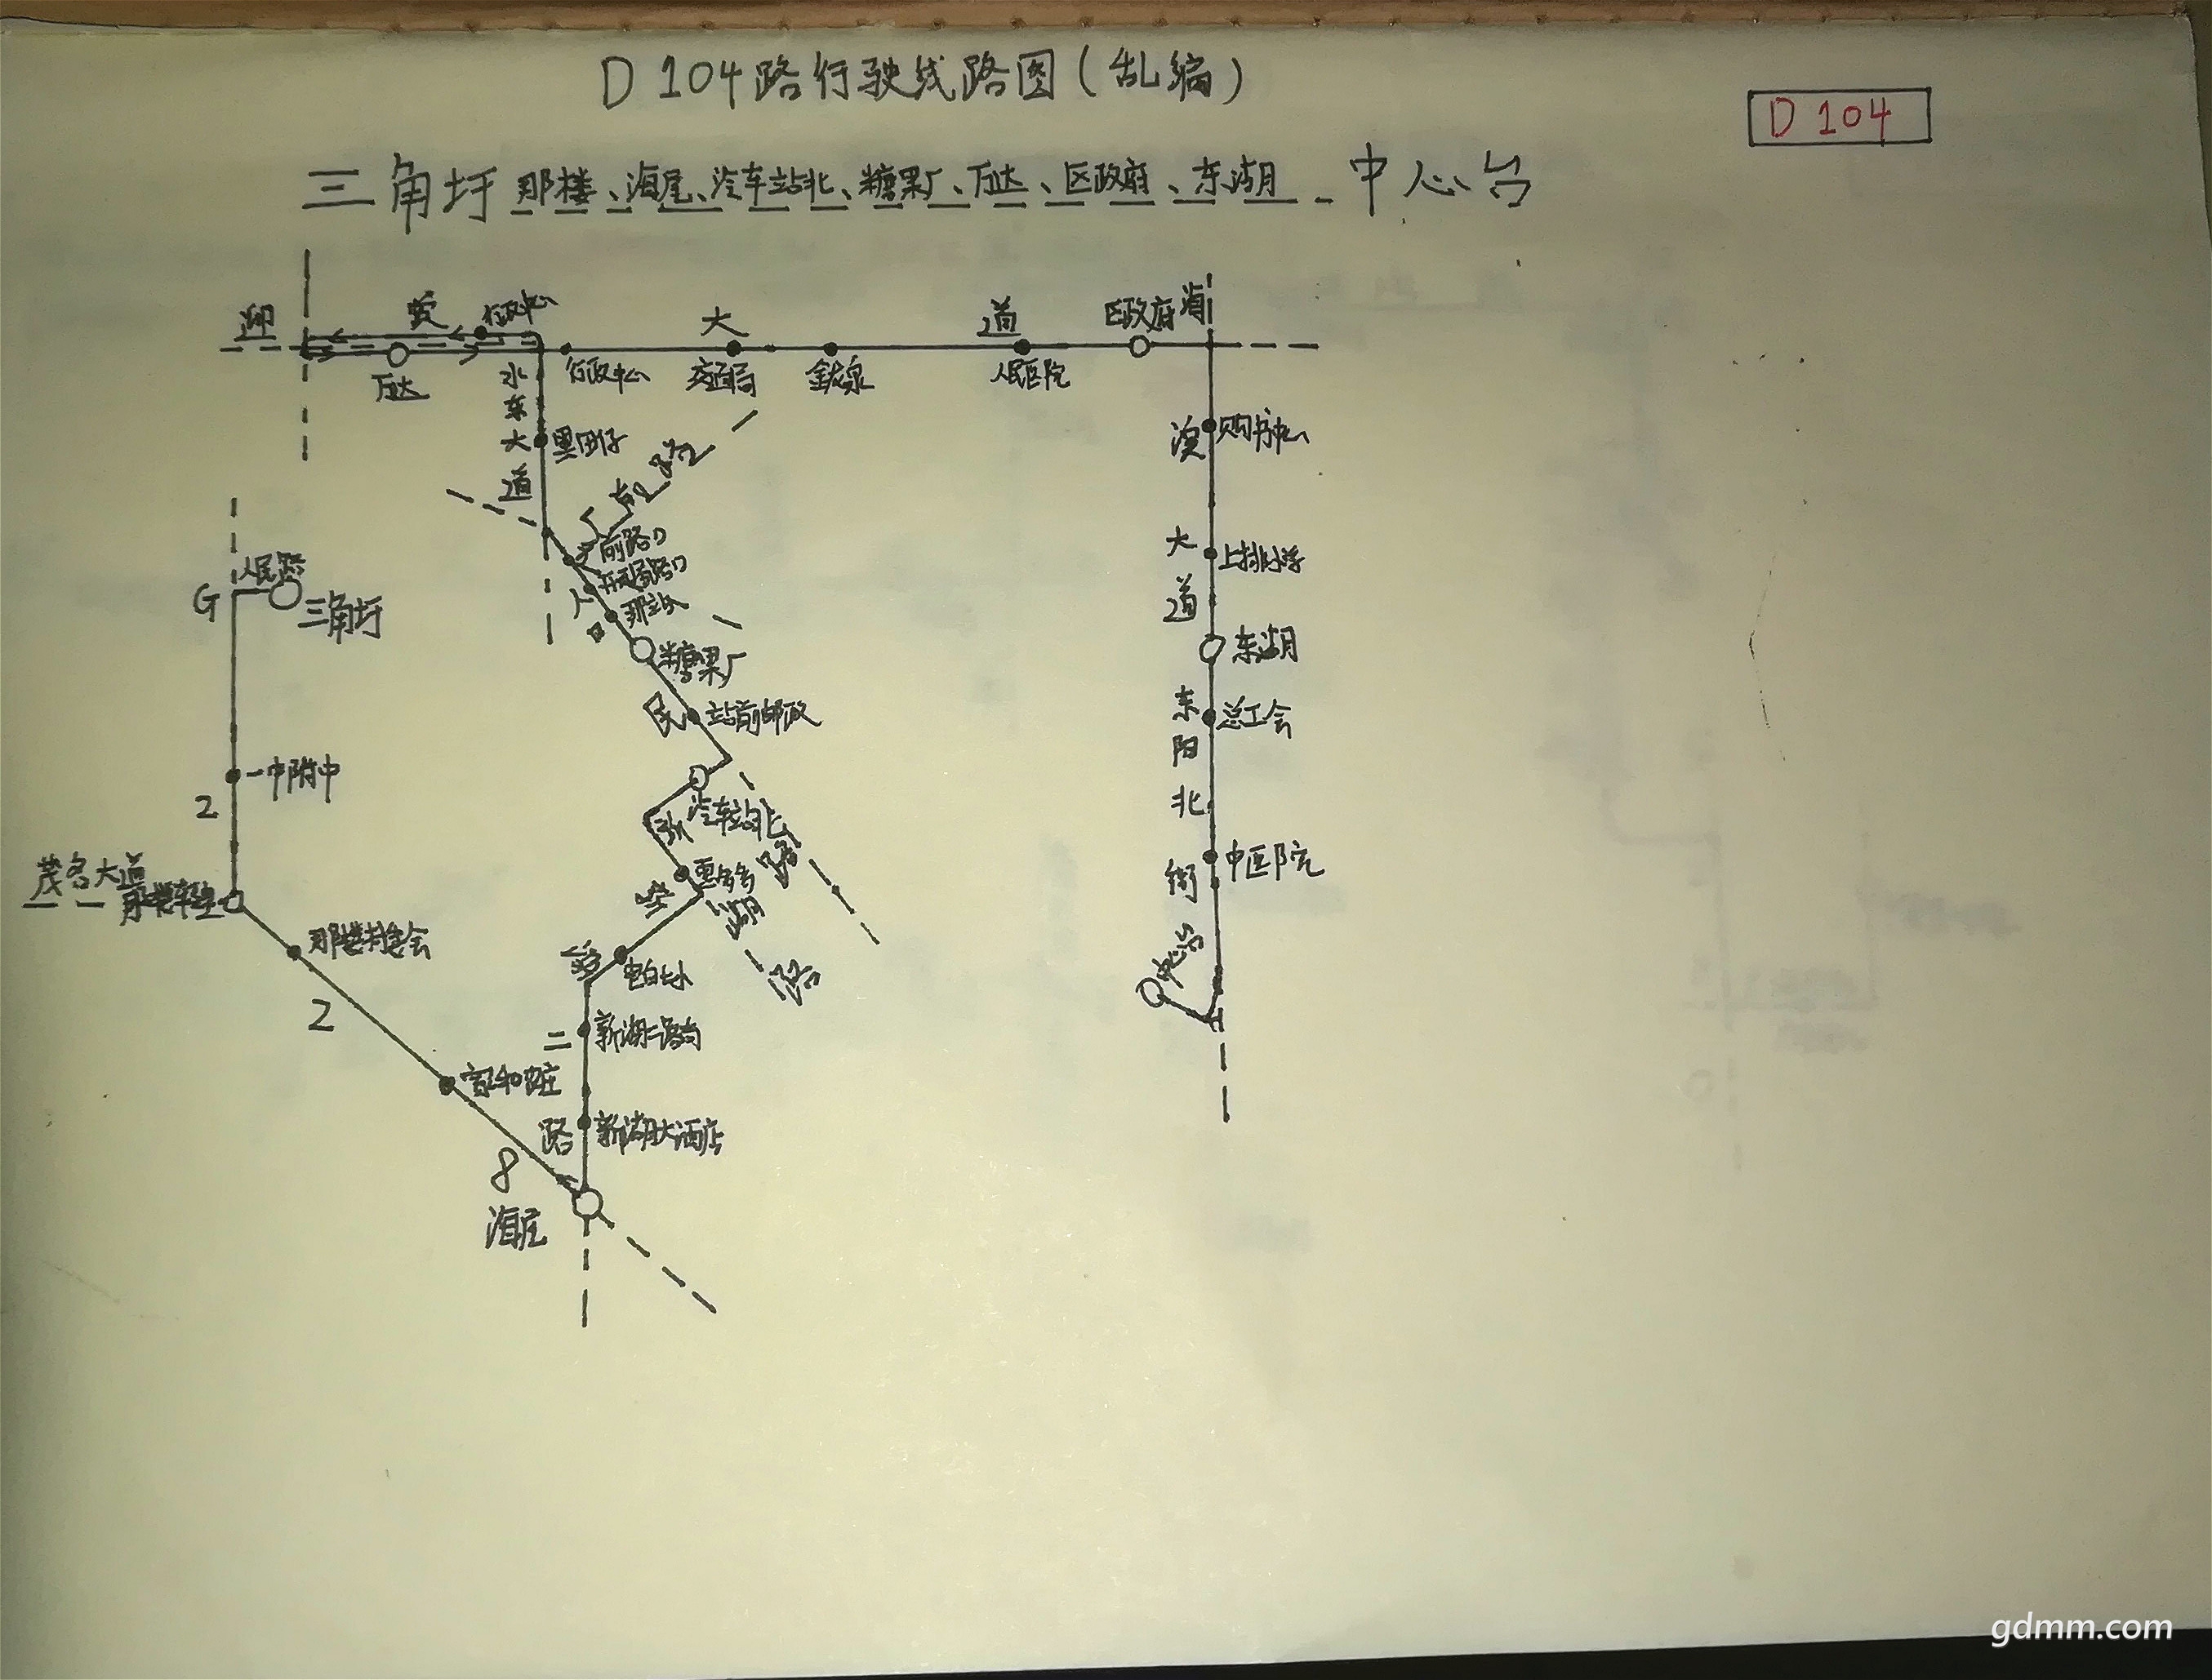 D 104路行驶线路图(乱编)
D 104
三角圩 那楼、海尾、汽车站北、糖果厂、万达、区政府、东湖 中心台
迎
宾
行政中心
大
道
区政府
海
万达
水东大道
行政中心
交通局
金龙泉
人民医院
滨
购书中心
黑田仔
上排小学
大
道
前路口
人民路
G
三角圩
糖果厂
东湖
民
站前邮政
东阳北街
总工会
一中附中
2
汽车站北
路
茂名大道
惠多多
中医院
那楼村委会
湖
路
中心台
2
新湖二路南
二
家和农庄
路
新湖大酒店
8
海尾
gdmm.com